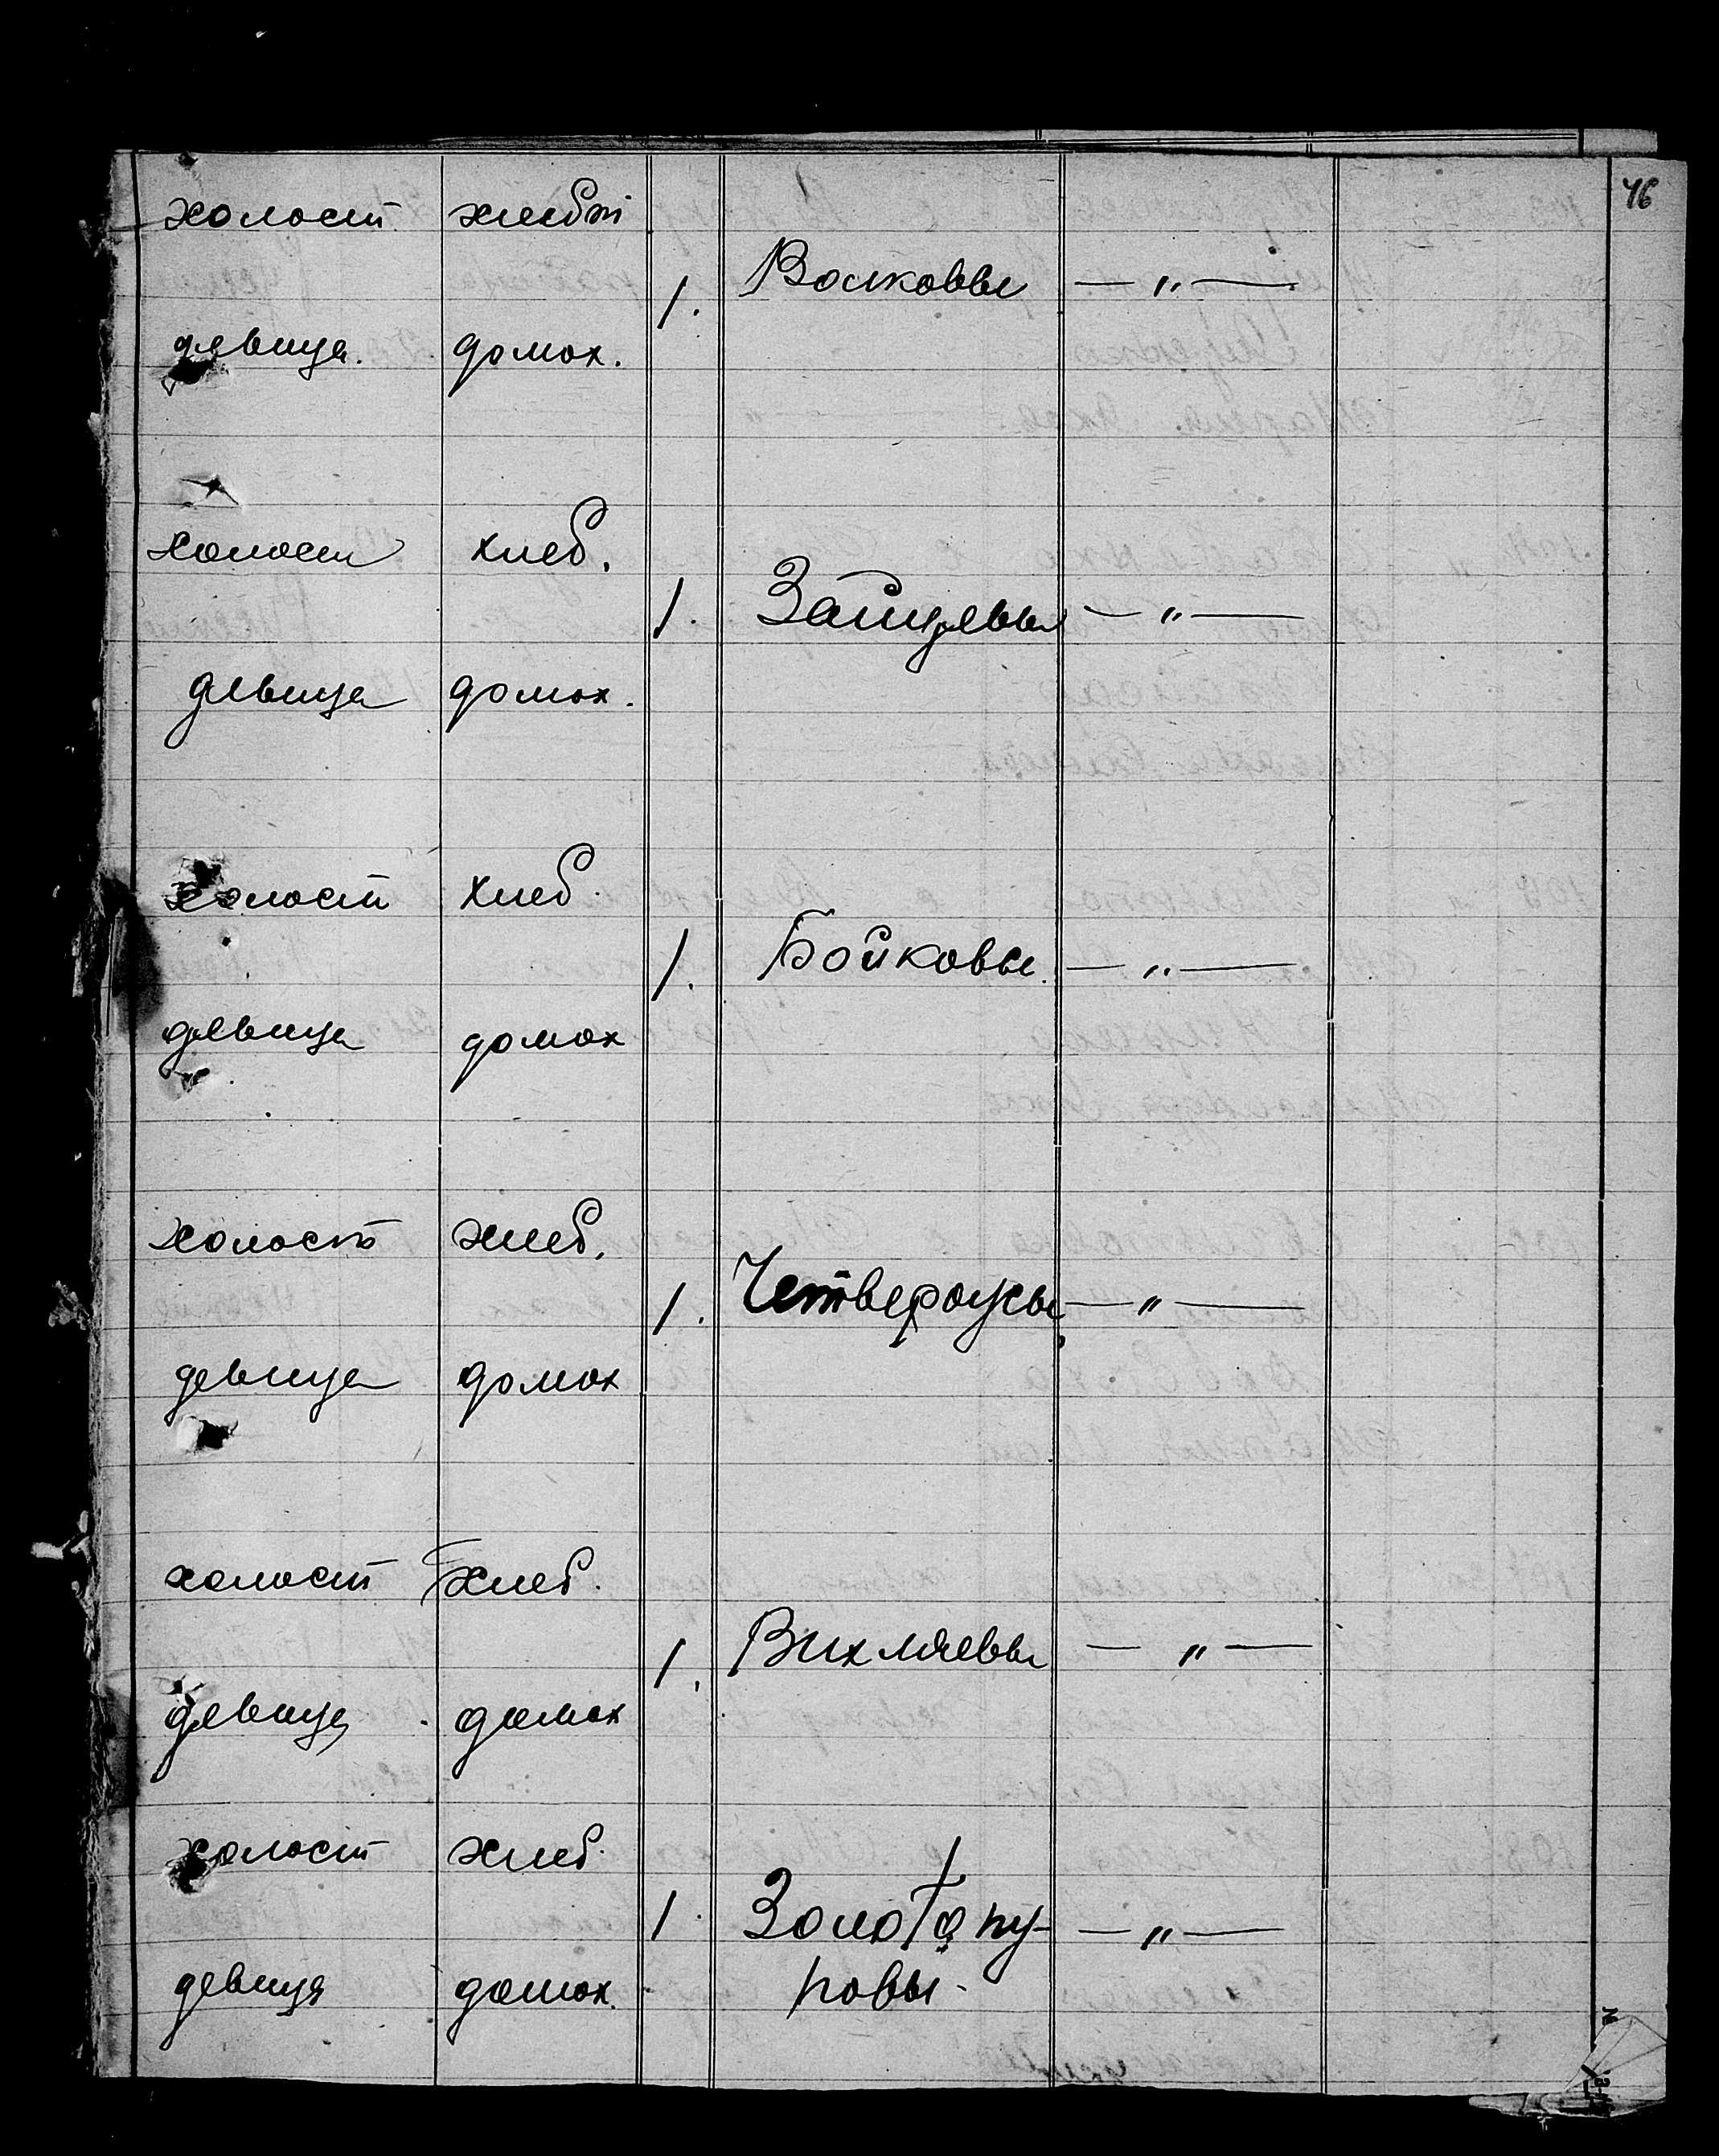 46
холост хлебп
1. Волковы — „ —
девица. домох.
холост хлеб.
1. Зайцевы — „ —
девица домох.
холост хлеб.
1. Бойковы. — „ —
девица домох
холост хлеб.
1. — „ —
девица домох
холост хлеб.
1. Вихляевы — „ —
девица домох
холост хлеб.
1. Золота пу- — „ —
повы.
девица домох.